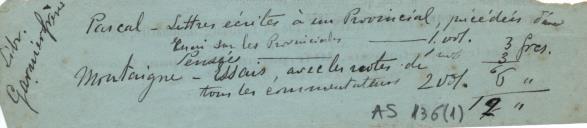 Libr.
Garnier frères
Pascal - Lettres écrites à un Provincial, précédées d'un
Essai sur les Provinciales — 1. vol. 3 frcs.
Pensées 3
Montaigne - Essais, avec les notes de
tous les commentateurs 2 vol. 6 "
12 "
AS 136(1)